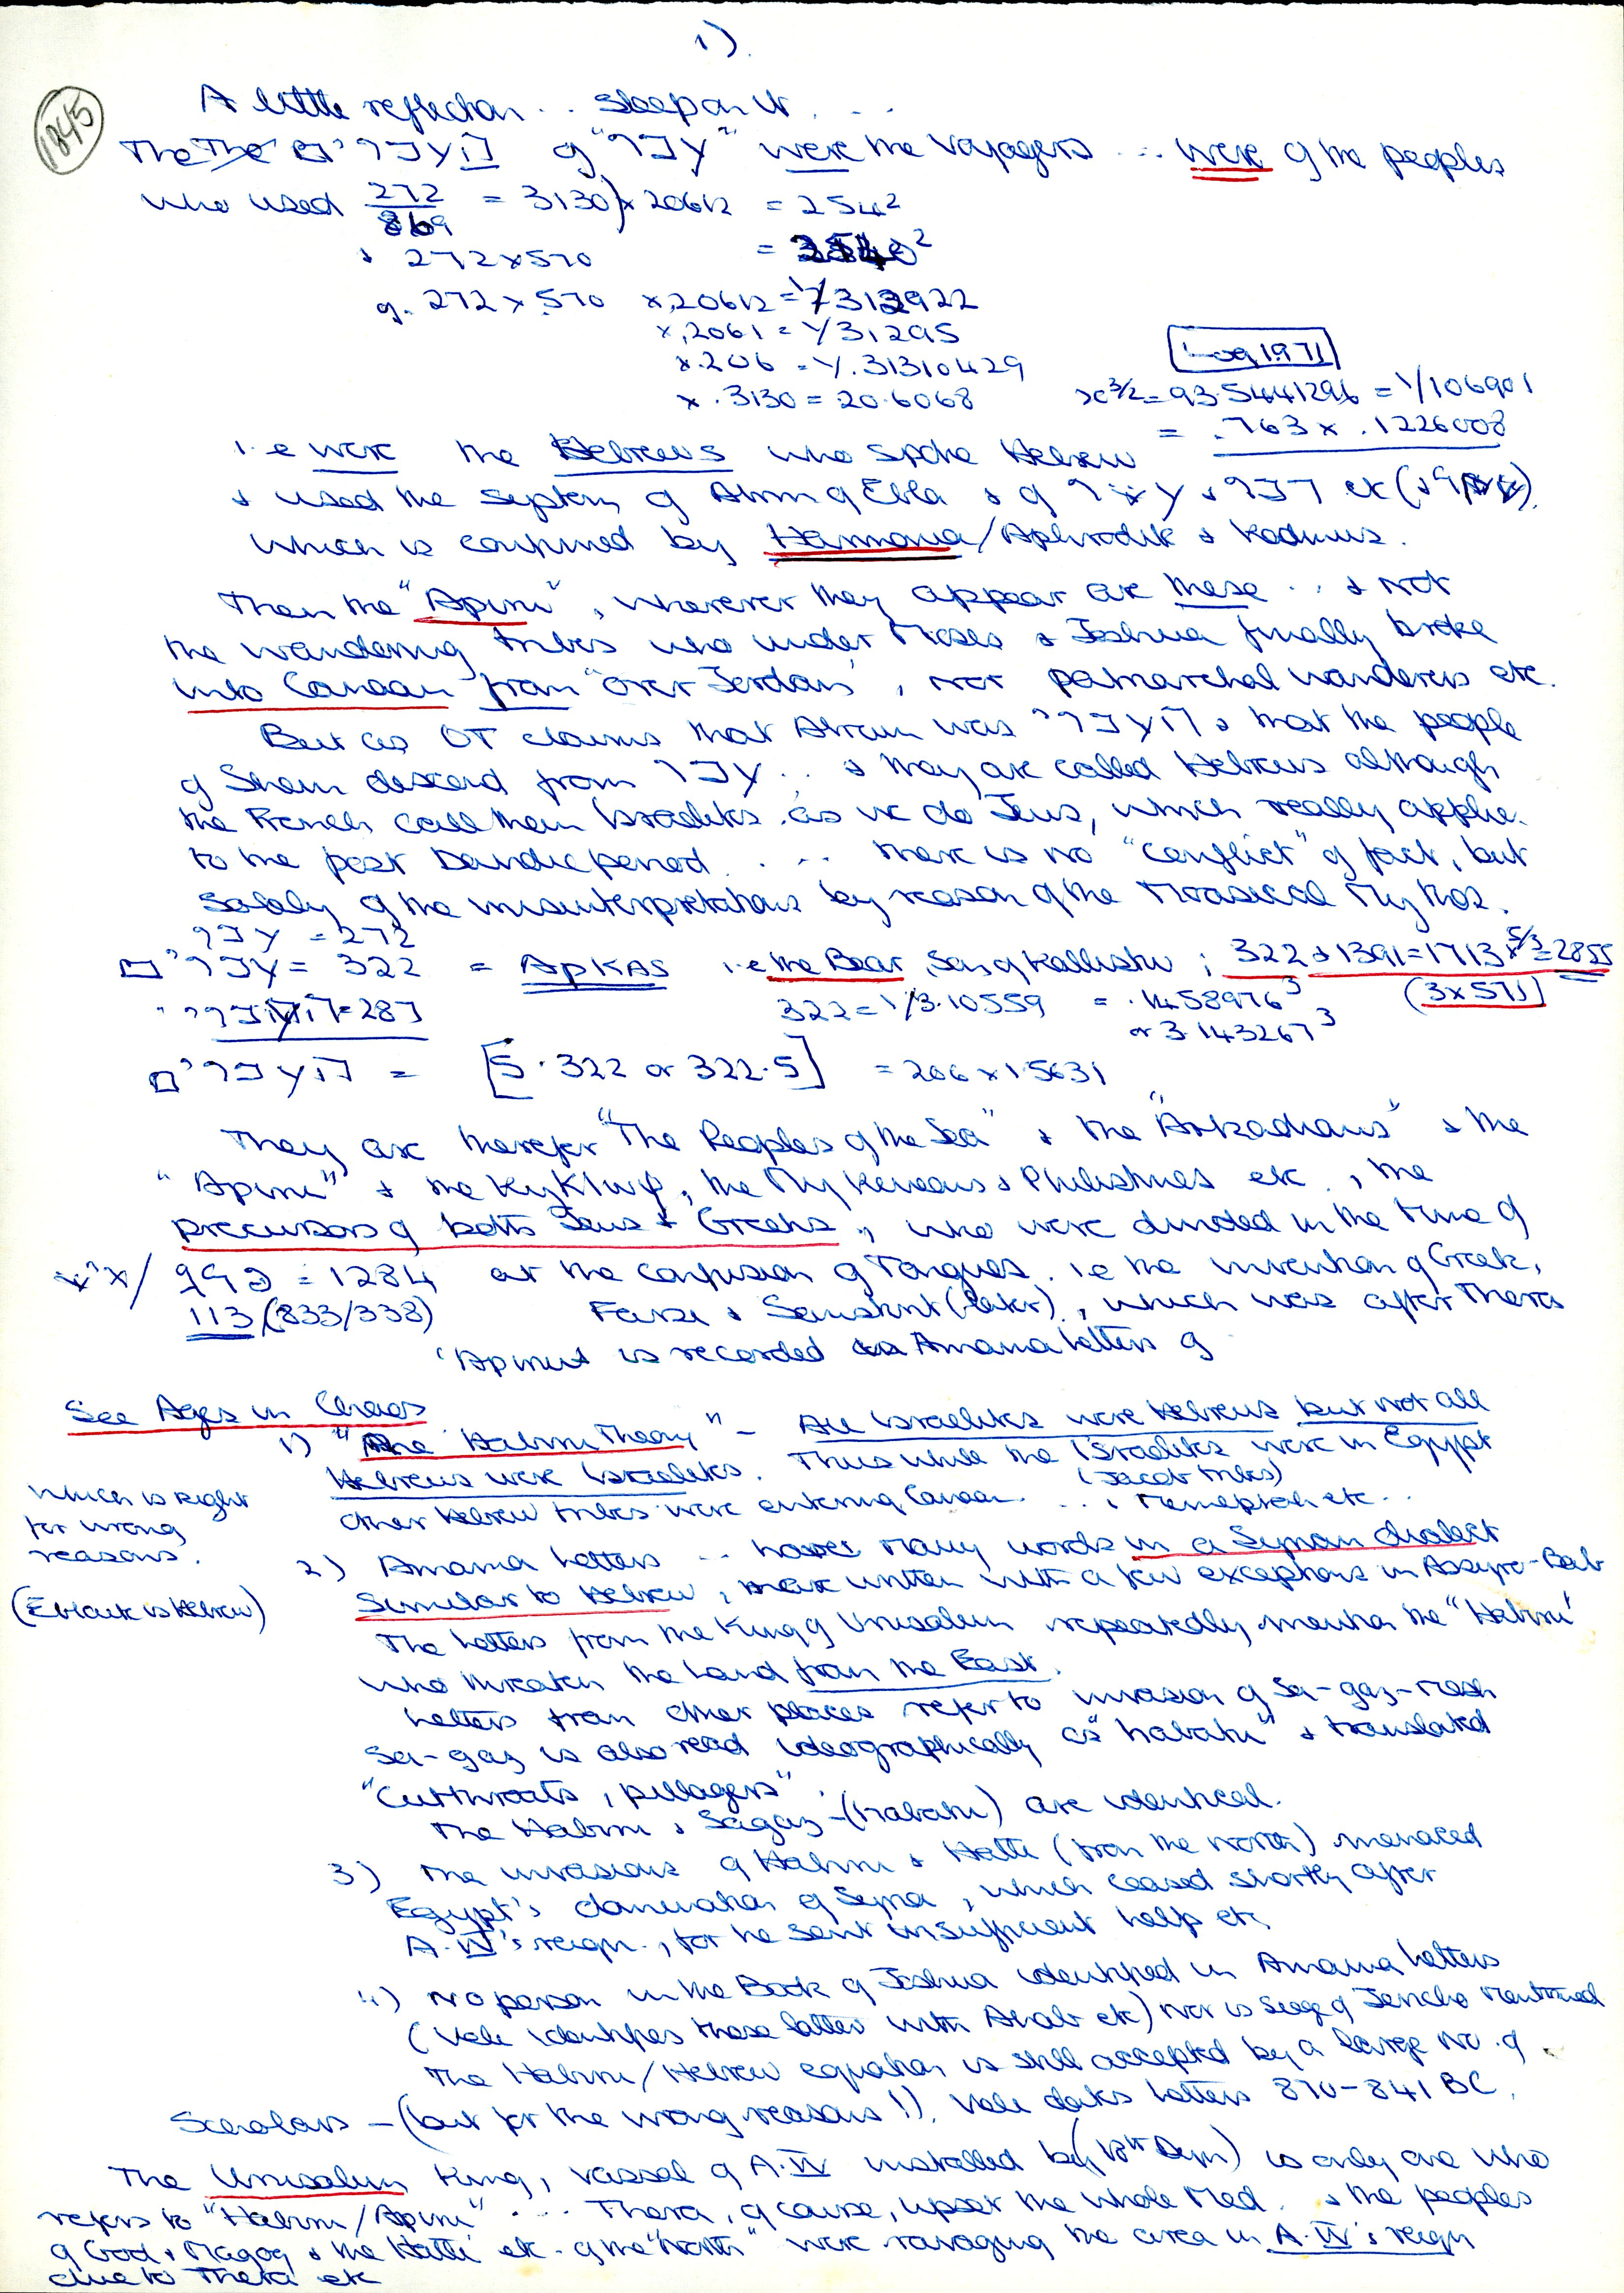 1)
1845
A little reflection .. Sleep on it . . .
The ם'רבעה of "רבע" were the Voyagers ... were of the peoples
who used 272/869 = 3130) x 20612 = 254²
& 272 x 570
g. 272 x 570 x,20612 = 1/313922
x,2061 = 1/31295
x.206 = 1/.31310429
x .3130 = 20.6068
Log 1971
x^3/2 = 93.5441296 = 1/106901
= .763 x .1226008
i.e were the Hebrews who spoke Hebrew
& used the system of Abram of Ebla & of
which is confirmed by Harmonia/Aphrodite & Kadmus.
Then the "Apiru", wherever they appear are these .. & not
the wandering tribes who under Moses & Joshua finally broke
into Canaan from "over Jordan", nor patriarchal wanderers etc.
But as OT claims that Abram was 'רבעה & that the people
of Shem descend from רבע .. & they are called Hebrews although
the French call them Israelites as we do Jews, which really applie.
to the post Davidic period ... there is no "conflict" of fact, but
solely of the misinterpretations by reason of the Mosaical Mythos.
רבע = 272
ם'רבע = 322 = ApKAS i.e the Bear, Son of Kallisto ; 322 & 1391 = 1713 x 5/3 = 2855
(3x571)
= 287
322 = 1/3.10559 = .1458976³
or 3.143267³
ם'רבעה = [5.322 or 322.5] = 206 x 1.5631
They are therefor "The Peoples of the Sea" & the "Arkadians" & the
"Apiru" & the KyKlwψ, the Mykeneans & Philistines etc., the
precursors of both Jews & Greeks, who were divided in the time of
= 1284 at the confusion of Tongues. i.e the invention of Greek,
113 (833/338) Farsi & Sanskrit (later), which was after Thera
'Apiru is recorded Amarna letters of
See Ages in Chaos
1) "The Habiru Theory" – All Israelites were Hebrews but not all
Hebrews were Israelites. Thus while the Israelites were in Egypt
(Jacob tribes)
other Hebrew tribes were entering Canaan ... Merneptah etc..
Which is right
for wrong
reasons.
(Eblaite is Hebrew)
2) Amarna Letters .. many words in a Syrian dialect
Similar to Hebrew, were written with a few exceptions in Assyro-Bab
The letters from the King of Urusalim repeatedly mention the "Habiru"
who threaten the land from the East.
Letters from other places refer to invasion of Sa-gaz-Mesh
Sa-gaz is also read ideographically as "habatu" & translated
"Cutthroats, pillagers".
The Habiru & Sagaz-(habatu) are identical.
3) The invasions of Habiru & Hatti (from the North) menaced
Egypt's domination of Syria, which ceased shortly after
A.IV's reign., for he sent insufficient help etc
4) No person in the Book of Joshua identified in Amarna letters
(Veli identifies these latter with Ahab etc) nor is siege of Jericho mentioned
The Habiru/Hebrew equation is still accepted by a large no. of
Scholars – (but for the wrong reasons!). Veli dates letters 870–841 BC.
The Urusalim King, vassal of A.IV installed by (18th Dyn) is only one who
refers to "Habiru/Apiru" ... Thera, of course, upset the whole Med. & the peoples
of God & Magog & the Hatti etc. of the "North" were ravaging the area in A.IV's reign
due to Thera etc